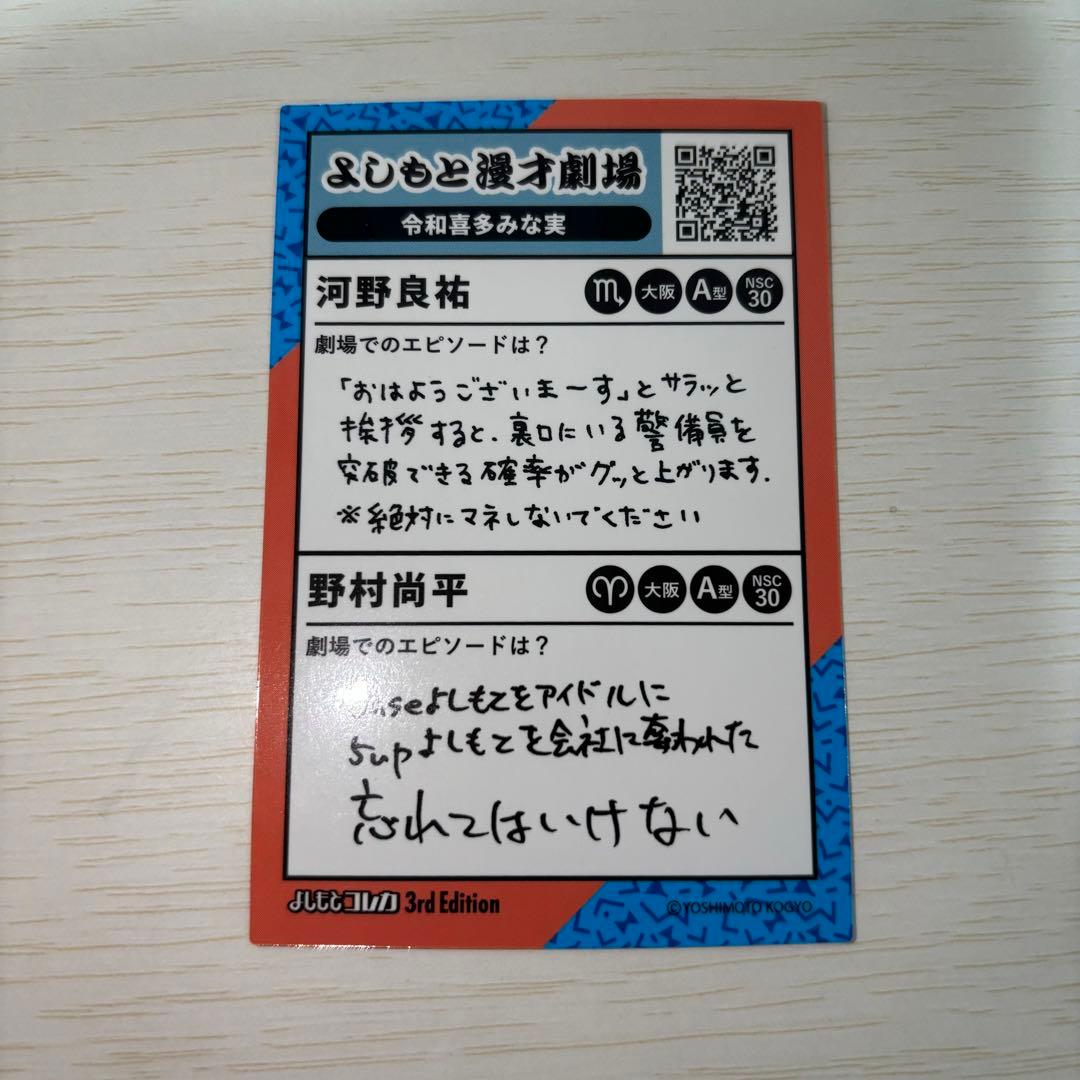 よしもと漫才劇場
令和喜多みな実
河野良祐
大阪
A型
NSC
30
劇場でのエピソードは？
「おはようございま〜す」とサラッと
挨拶すると、裏口にいる警備員を
突破できる確率がグッと上がります.
※絶対にマネしないでください
野村尚平
大阪
A型
NSC
30
劇場でのエピソードは？
baseよしもとをアイドルに
5upよしもとを会社に奪われた
忘れてはいけない
よしもとコレカ 3rd Edition
©YOSHIMOTO KOGYO